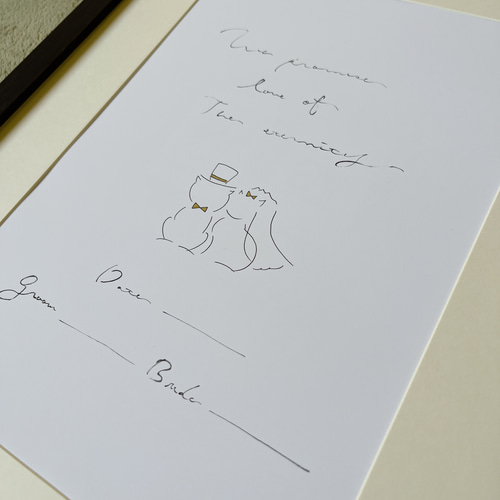 We promise
love of
The eternity
Date
Groom
Bride